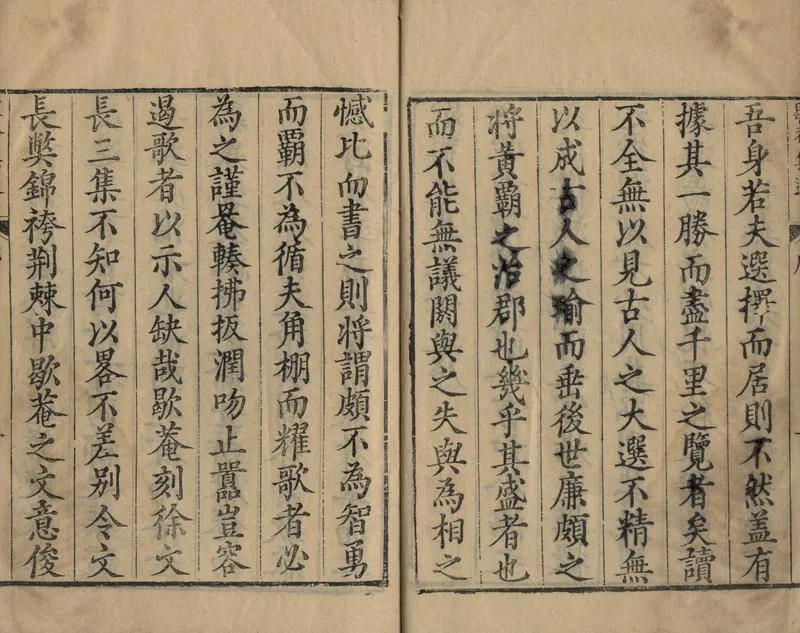 吾身若夫選擇而居則不然盖有
據其一勝而盡千里之覽者矣讀
不全無以見古人之大選不精無
以成古人之瑜而垂後世廉頗之
將黃霸之治郡也幾乎其盛者也
而不能無議闕與之失與為相之
憾比而書之則將謂頗不為智勇
而霸不為循夫角棚而耀歌者必
為之謹菴輳拂扳潤吻止囂豈容
遏歌者以示人缺哉歇菴刻徐文
長三集不知何以畧不差别令文
長獘錦袴荆棘中歇菴之文意俊